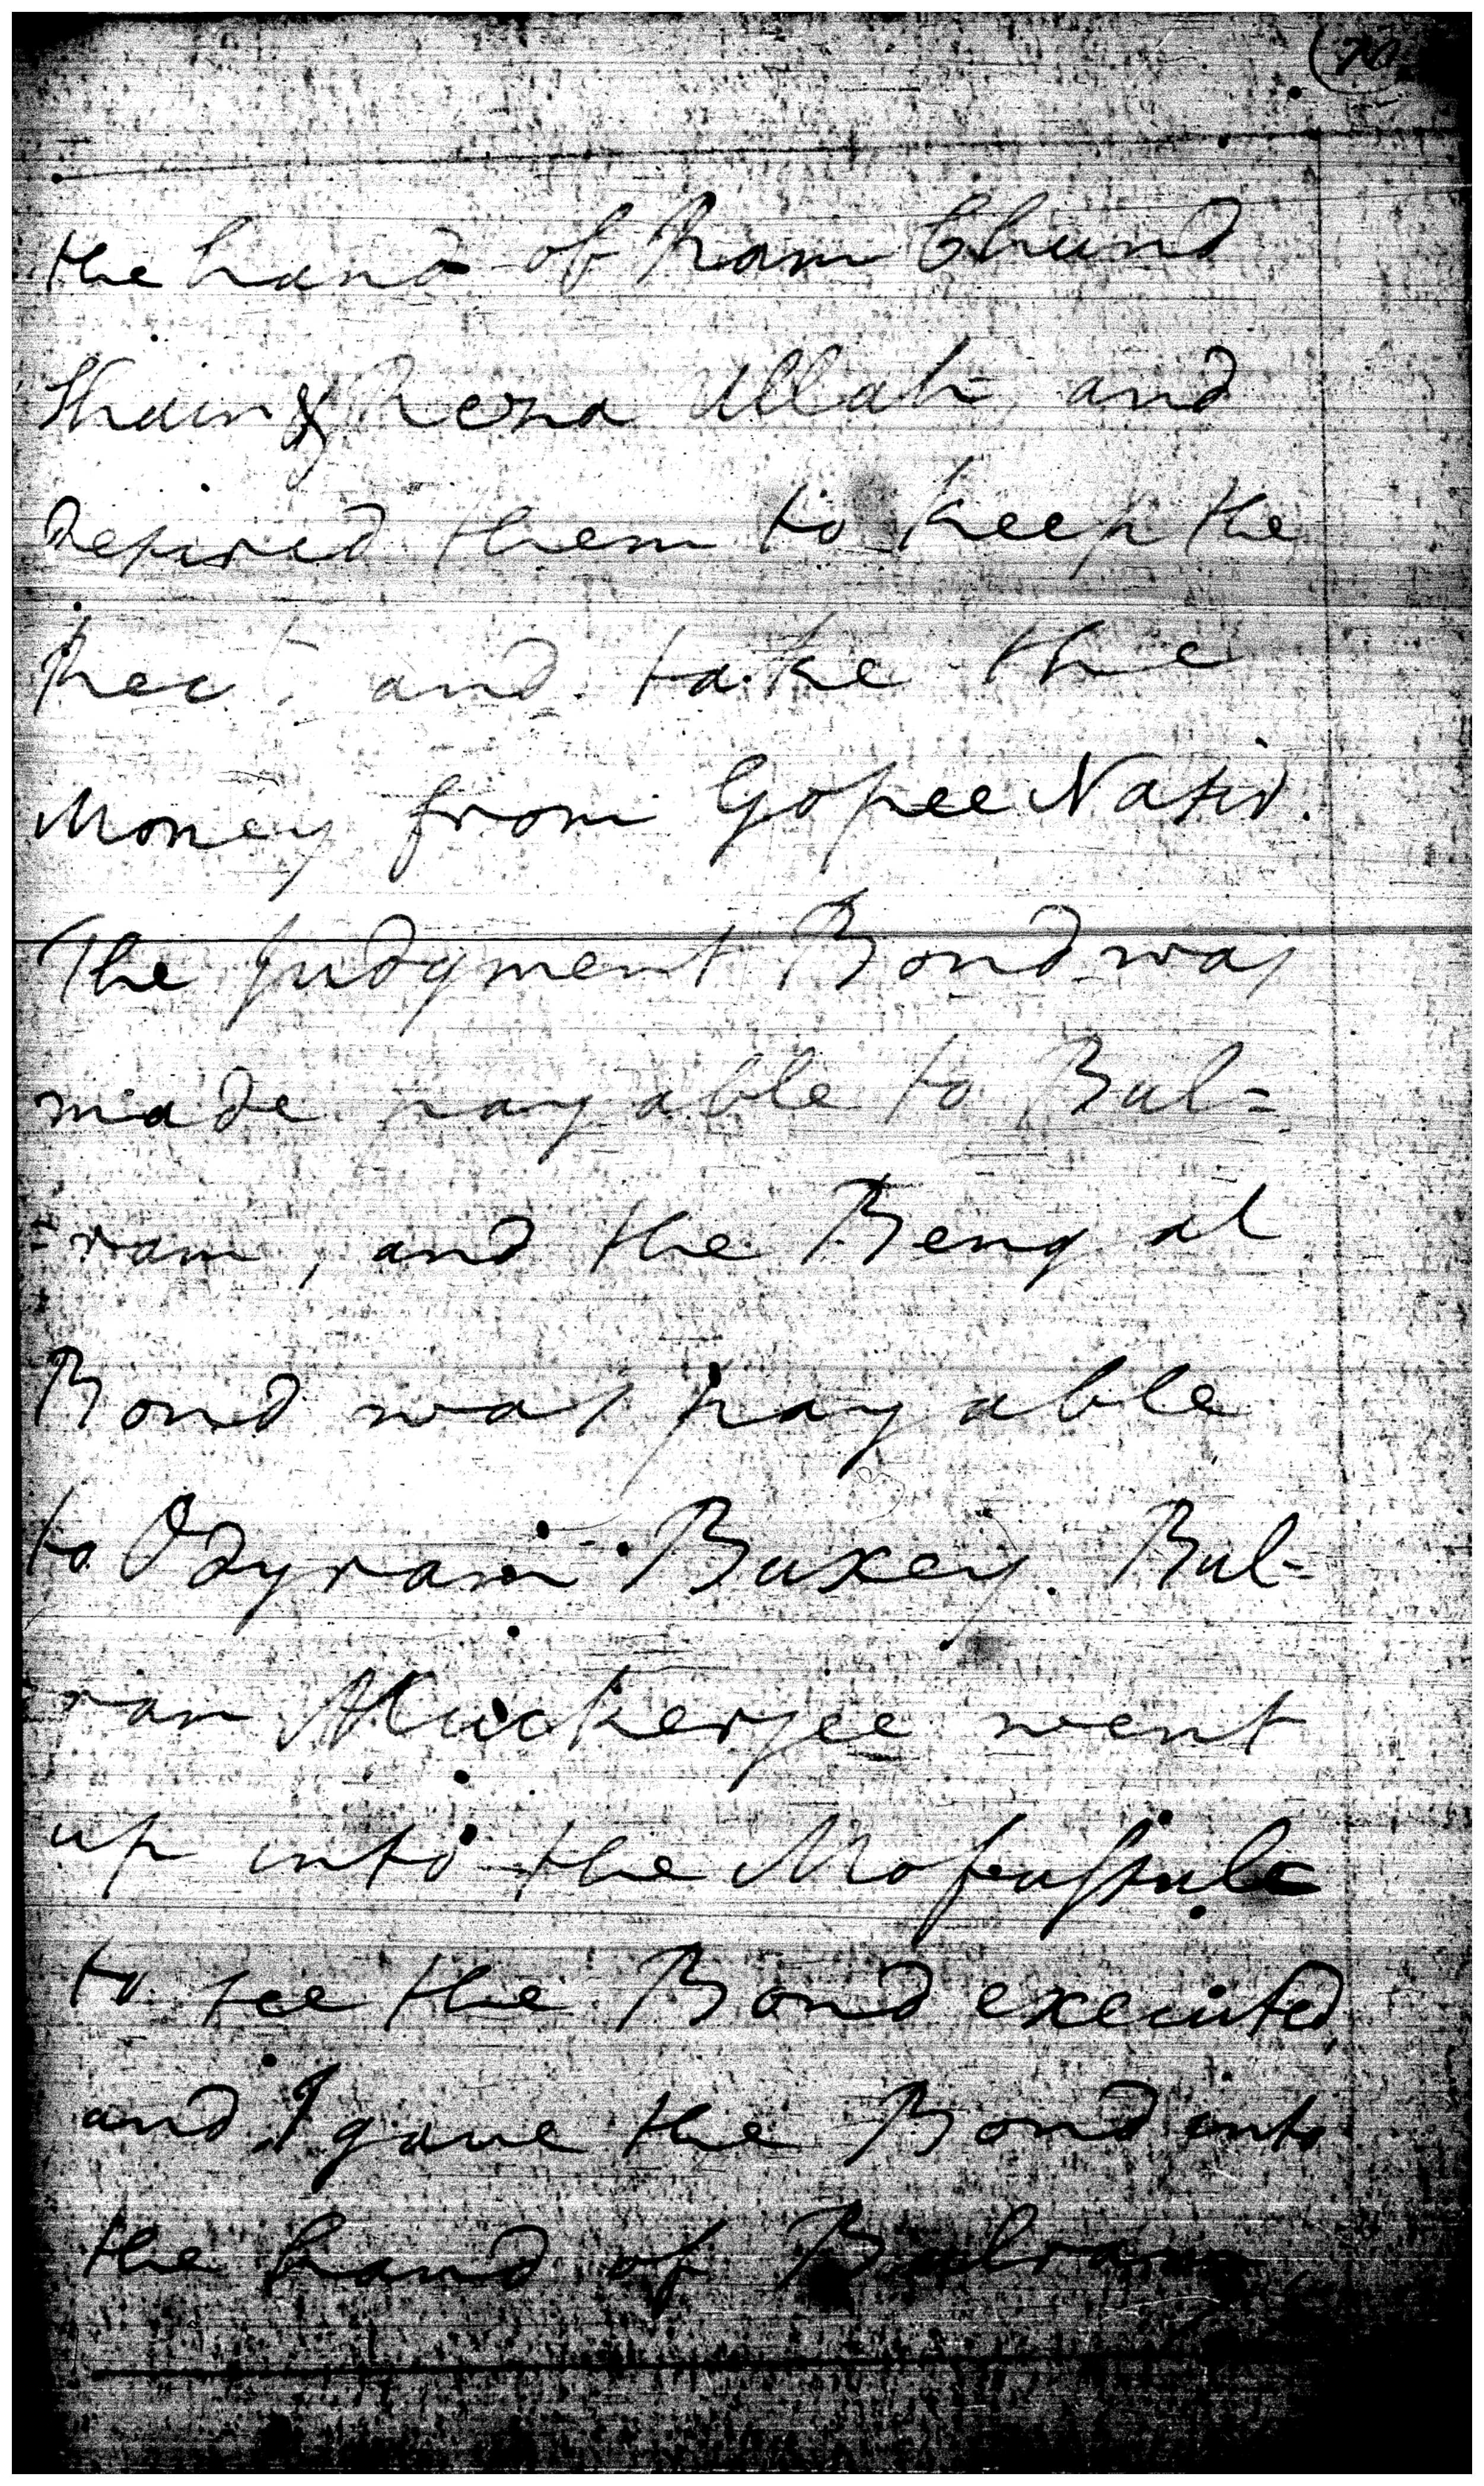 the hand of Ram Chund
Shain & Reza Ullah and
desired them to keep the
Rect. and take the
Money from Gopee Nasir.
The Judgment Bond was
made payable to Bul=
=ram, and the Bengal
Bond was payable
to Odyram Buxey. Bul=
ram Muckerjee went
up into the Mofussule
to see the Bond executed,
and I gave the Bond into
the hand of Bulram